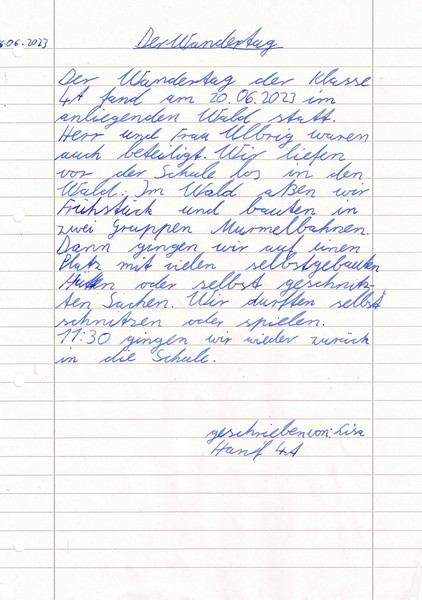 6.06.2023 Der Wandertag
Der Wandertag der Klasse
4A fand am 20.06.2023 im
anliegenden Wald statt.
Herr und Frau Ulbrig waren
auch beteiligt. Wir liefen
vor der Schule los in den
Wald. Im Wald aßen wir
Frühstück und bauten in
zwei Gruppen Murmelbahnen.
Dann gingen wir auf einen
Platz mit vielen selbstgebauten
Hütten oder selbst geschnitz-
ten Sachen. Wir durften selbst
schnitzen oder spielen.
11:30 gingen wir wieder zurück
in die Schule.
geschrieben von: Lisa
Hanf 4A